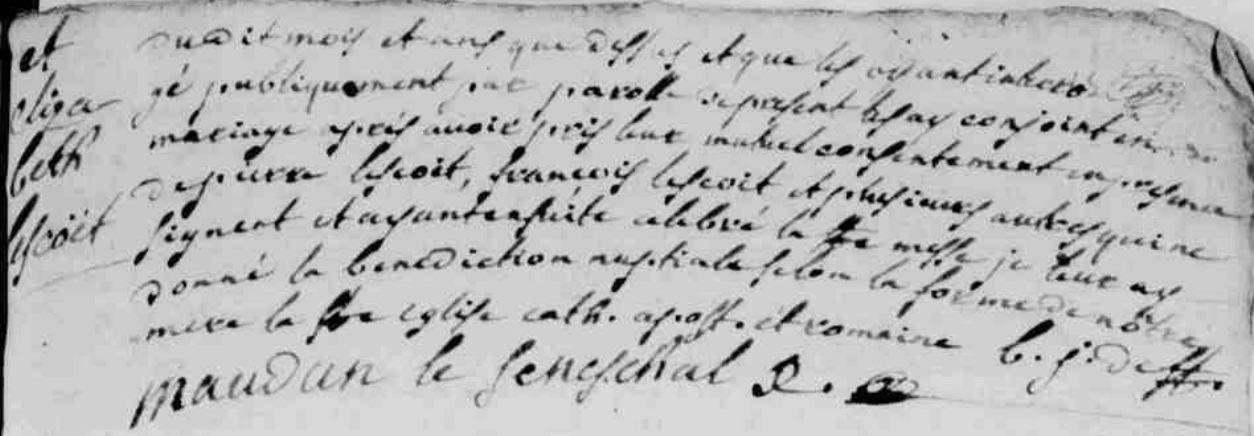 et
eliza
beth
lescöit
dudit mois et ans que dessus et que les ayant interro
gé publiquement par parolle de present les ay conjoint en
mariage aprés avoir pris leur mutuel consentement en presence
de pierre lescoit, francois lescoit et plusieurs autres qui ne
signent et ayant ensuite celebré la ste messe je leur ay
donné la benediction nuptiale selon la forme de nôtre
mere la ste eglise cath. apost. et romaine
maudan le seneschal